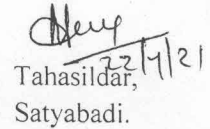 22/4/21
Tahasildar,
Satyabadi.